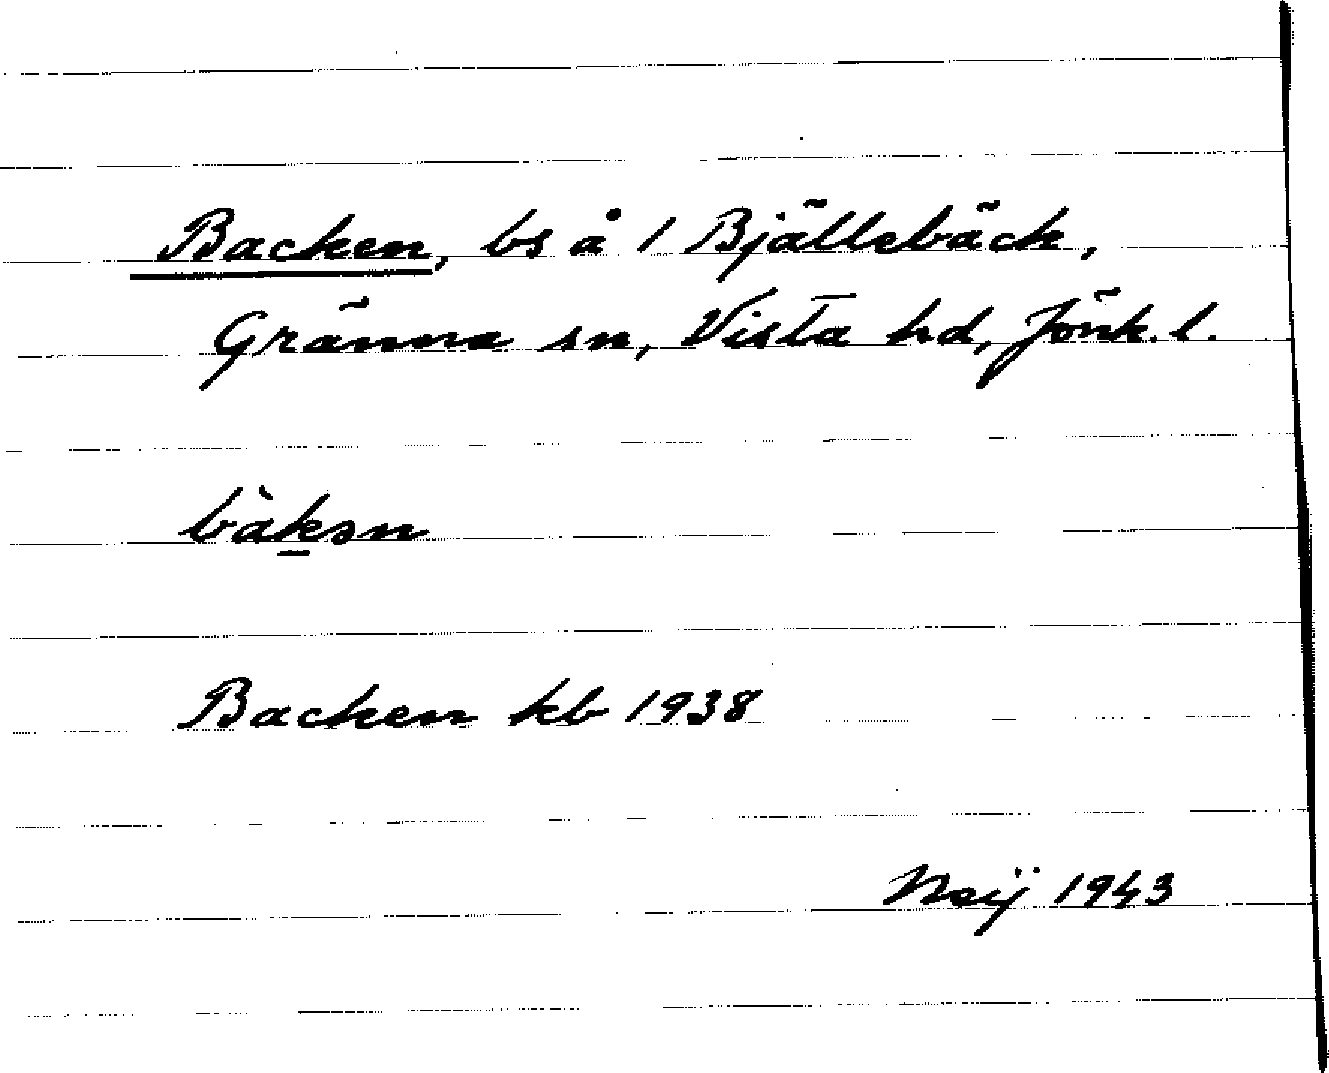 Backen, bs å 1 Bjällebäck,
Gränna sn, Vista hd, Jönk. l.
bàkən
Backen kb 1938
Neij 1943